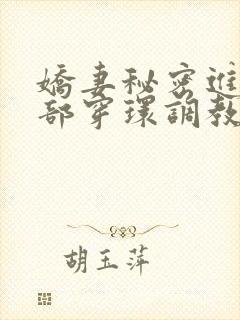 嬌妻秘密進
部穿環調教
胡玉萍